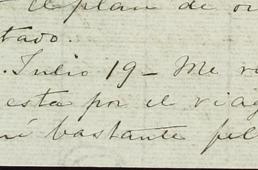 el plan de
tado.
. Julio 19 - Me
esta por el viag
né bastante fel